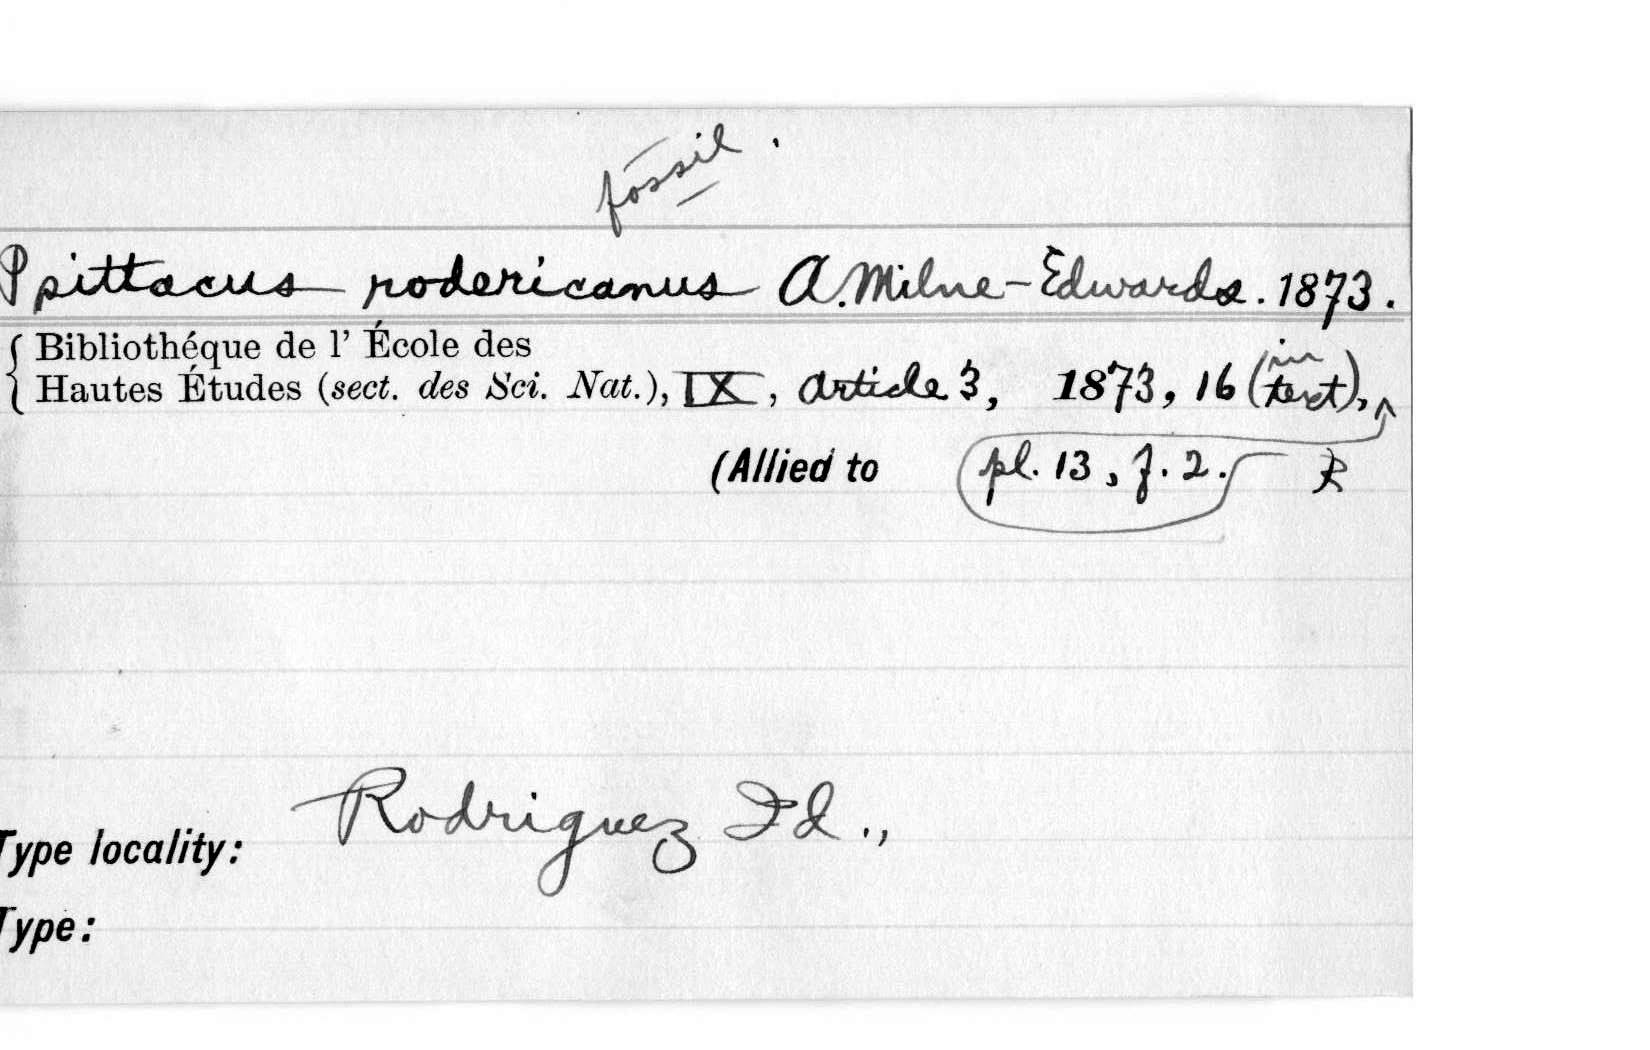 fossil.
Psittacus rodericanus A. Milne-Edwards. 1873.
Bibliothéque de l' École des
Hautes Études (sect. des Sci. Nat.), IX, Article 3, 1873, 16 (in text),
(Allied to pl. 13, f. 2. R
Type locality: Rodriguez Id.,
Type: